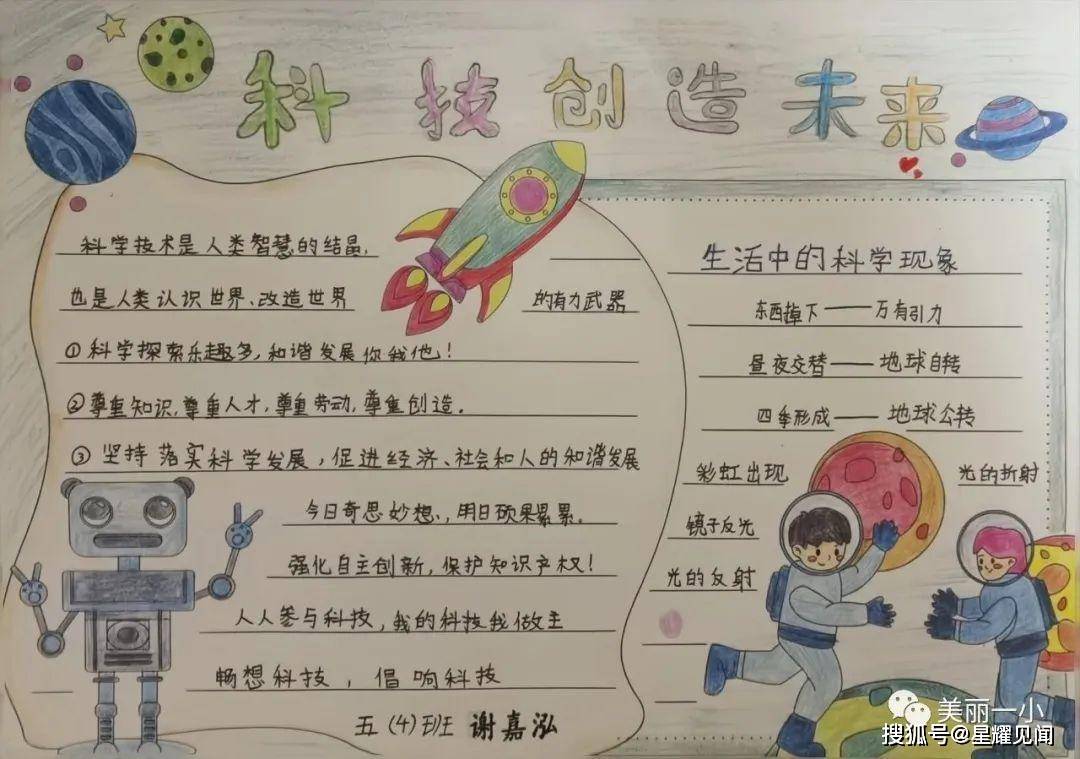 科技创造未来
科学技术是人类智慧的结晶,
也是人类认识世界、改造世界 的有力武器
①科学探索乐趣多,和谐发展你我他!
②尊重知识,尊重人才,尊重劳动,尊重创造.
③坚持落实科学发展,促进经济、社会和人的和谐发展
今日奇思妙想、,明日硕果累累.
强化自主创新,保护知识产权!
人人参与科技,我的科技我做主
畅想科技,倡响科技
五(4)班 谢嘉泓
生活中的科学现象
东西掉下——万有引力
昼夜交替——地球自转
四季形成——地球公转
彩虹出现 光的折射
镜子反光
光的反射
美丽一小
搜狐号@星耀见闻